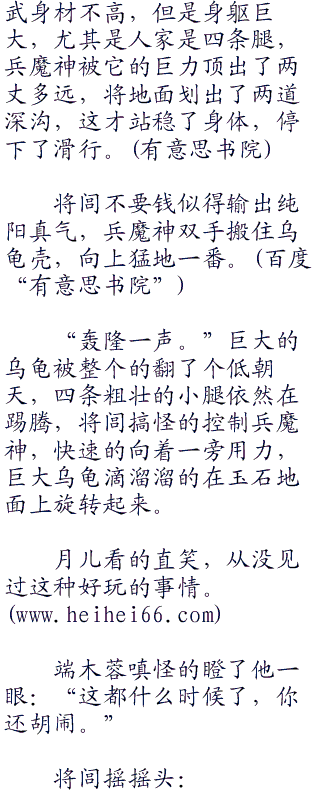 武身材不高，但是身躯巨
大，尤其是人家是四条腿，
兵魔神被它的巨力顶出了两
丈多远，将地面划出了两道
深沟，这才站稳了身体，停
下了滑行。(有意思书院)
将闾不要钱似得输出纯
阳真气，兵魔神双手搬住乌
龟壳，向上猛地一番。(百度
“有意思书院”)
“轰隆一声。”巨大的
乌龟被整个的翻了个低朝
天，四条粗壮的小腿依然在
踢腾，将闾搞怪的控制兵魔
神，快速的向着一旁用力，
巨大乌龟滴溜溜的在玉石地
面上旋转起来。
月儿看的直笑，从没见
过这种好玩的事情。
(www.heihei66.com)
端木蓉嗔怪的瞪了他一
眼：“这都什么时候了，你
还胡闹。”
将闾摇摇头：